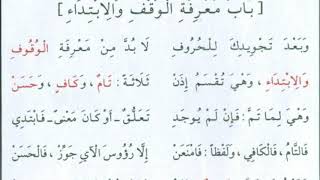 [ بَابُ مَعْرِفَةِ الْوَقْفِ وَالِابْتِدَاءِ ]
وَبَعْدَ تَجْوِيدِكَ لِلْحُرُوفِ لَا بُدَّ مِنْ مَعْرِفَةِ الْوُقُوفِ
وَالِابْتِدَاءِ ، وَهْيَ تُقْسَمُ إِذَنْ ثَلَاثَةً : تَامٌ ، وَكَافٍ ، وَحَسَنْ
وَهْيَ لِمَا تَمَّ : فَإِنْ لَمْ يُوجَدِ تَعَلُّقٌ - أَوْ كَانَ مَعْنًى - فَابْتَدِي
فَالتَّامُ ، فَالْكَافِي ، وَلَفْظًا : فَامْنَعَنْ إِلَّا رُؤُوسَ الْآيِ جَوِّزْ ، فَالْحَسَنْ